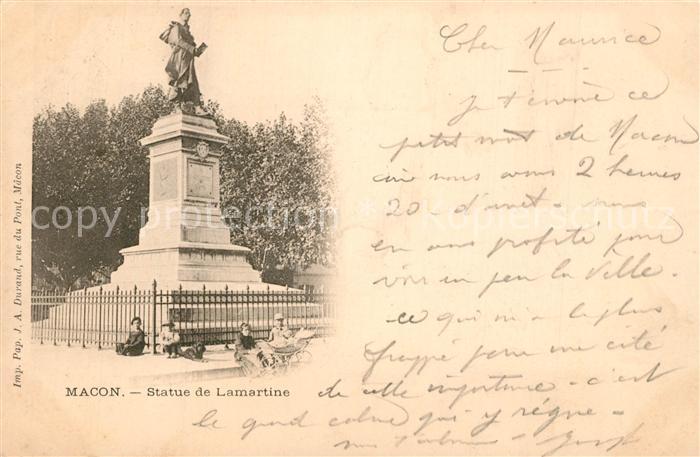 Cher Maurice
je t'envoie ce
petit mot de Macon
où nous avons 2 heures
20 d'arrêt - nous
en avons profité pour
voir un peu la ville.
ce qui m'a le plus
frappé pour une cité
de cette importance - c'est
le grand calme qui y règne -
MACON. — Statue de Lamartine
Imp. Pap. J. A. Durand, rue du Pont, Mâcon
copy protected
Kopierschutz